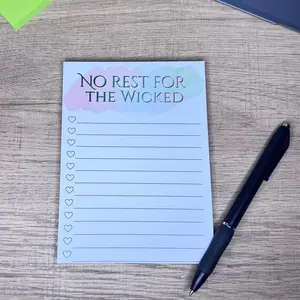 No rest for
the Wicked